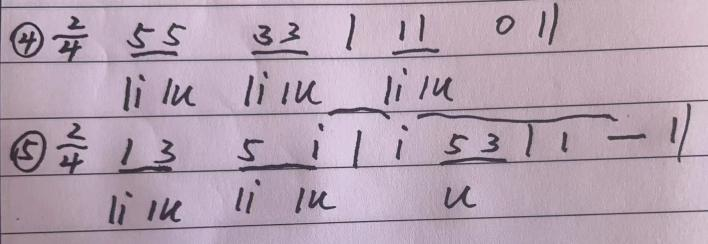 ④ 2/4 5 5 3 3 | 1 1 0 ||
li lu li lu li lu
⑤ 2/4 1 3 5 i | i 5 3 | 1 — ||
li lu li lu u